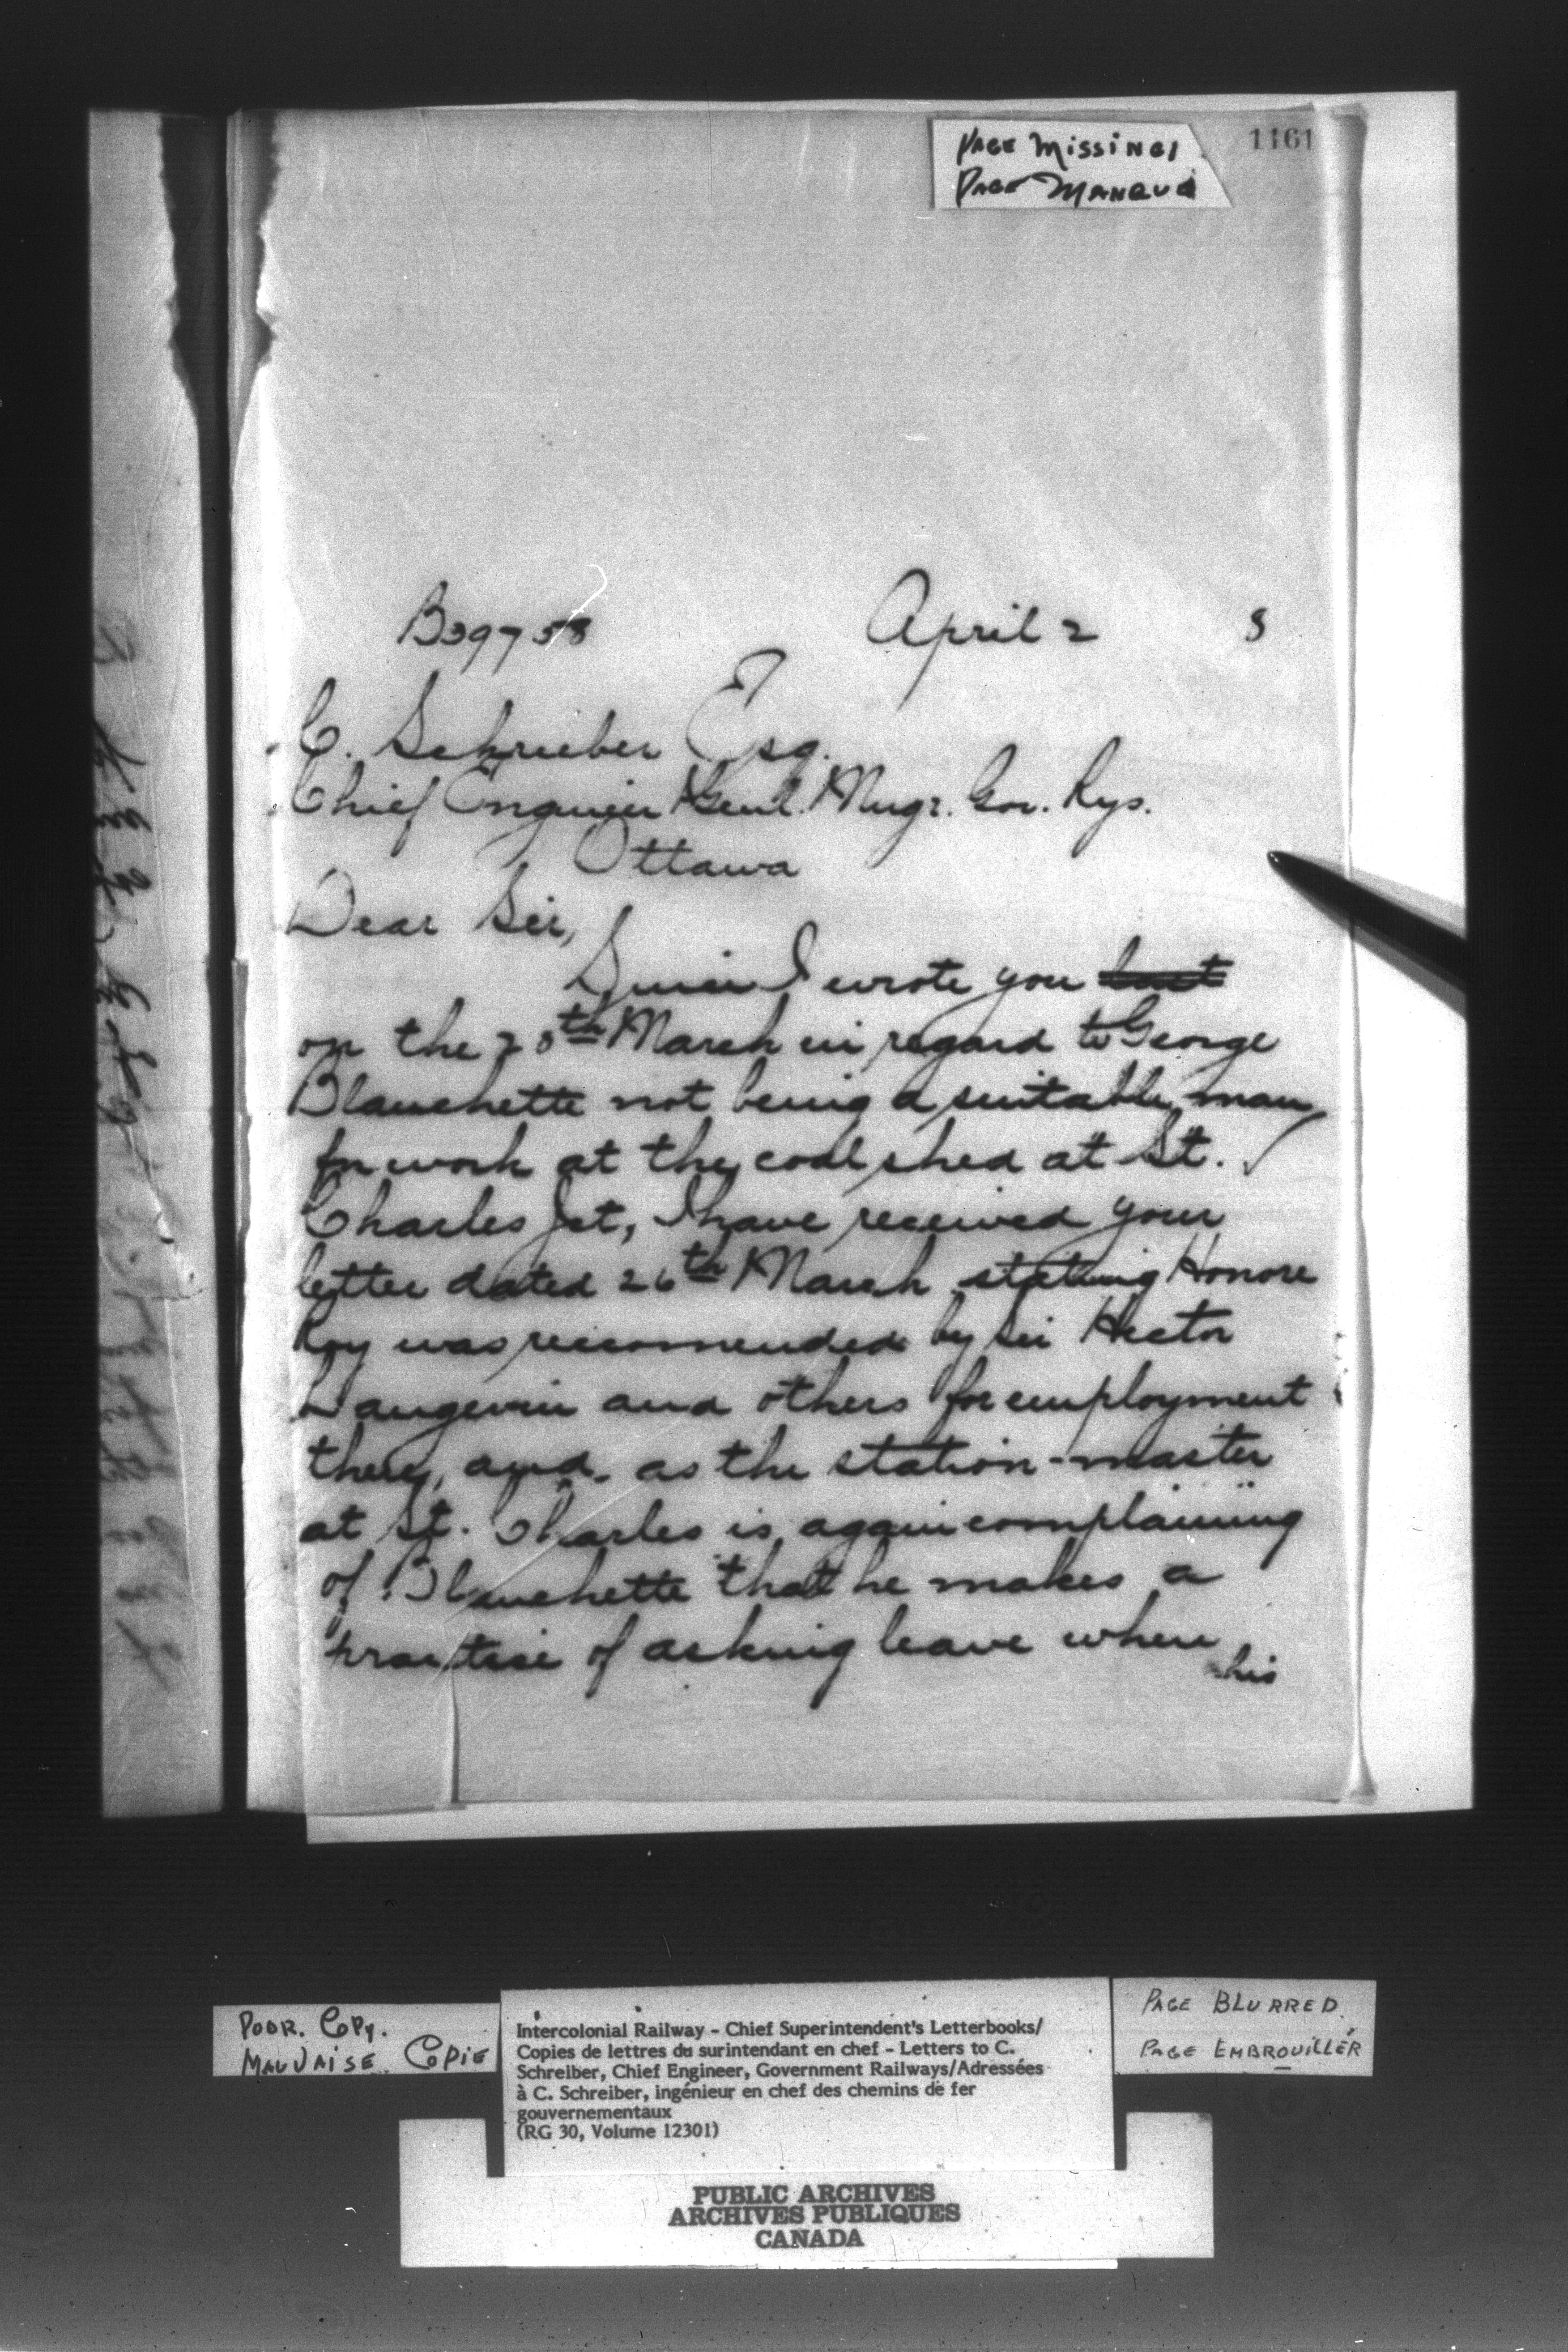 PAGE MISSING
PAGE MANQUÉ
1161
B39758 April 2 8
C. Schrieber Esq.
Chief Engineer & Genl. Mngr. Gov. Rys.
Ottawa
Dear Sir,
Since I wrote you last
on the 28th March in regard to George
Blanchette not being a suitable man
for work at the coal shed at St.
Charles Jct, I have received your
letter dated 26th March stating Honore
Roy was recommended by Sir Hector
Langevin and others for employment
there, and as the station-master
at St. Charles is again complaining
of Blanchette that he makes a
practise of asking leave when
his
POOR. COPY.
MAUVAISE COPIE
Intercolonial Railway - Chief Superintendent's Letterbooks/
Copies de lettres du surintendant en chef - Letters to C.
Schreiber, Chief Engineer, Government Railways/Adressées
à C. Schreiber, ingénieur en chef des chemins de fer
gouvernementaux
(RG 30, Volume 12301)
PAGE BLURRED
PAGE EMBROUILLÉR
PUBLIC ARCHIVES
ARCHIVES PUBLIQUES
CANADA